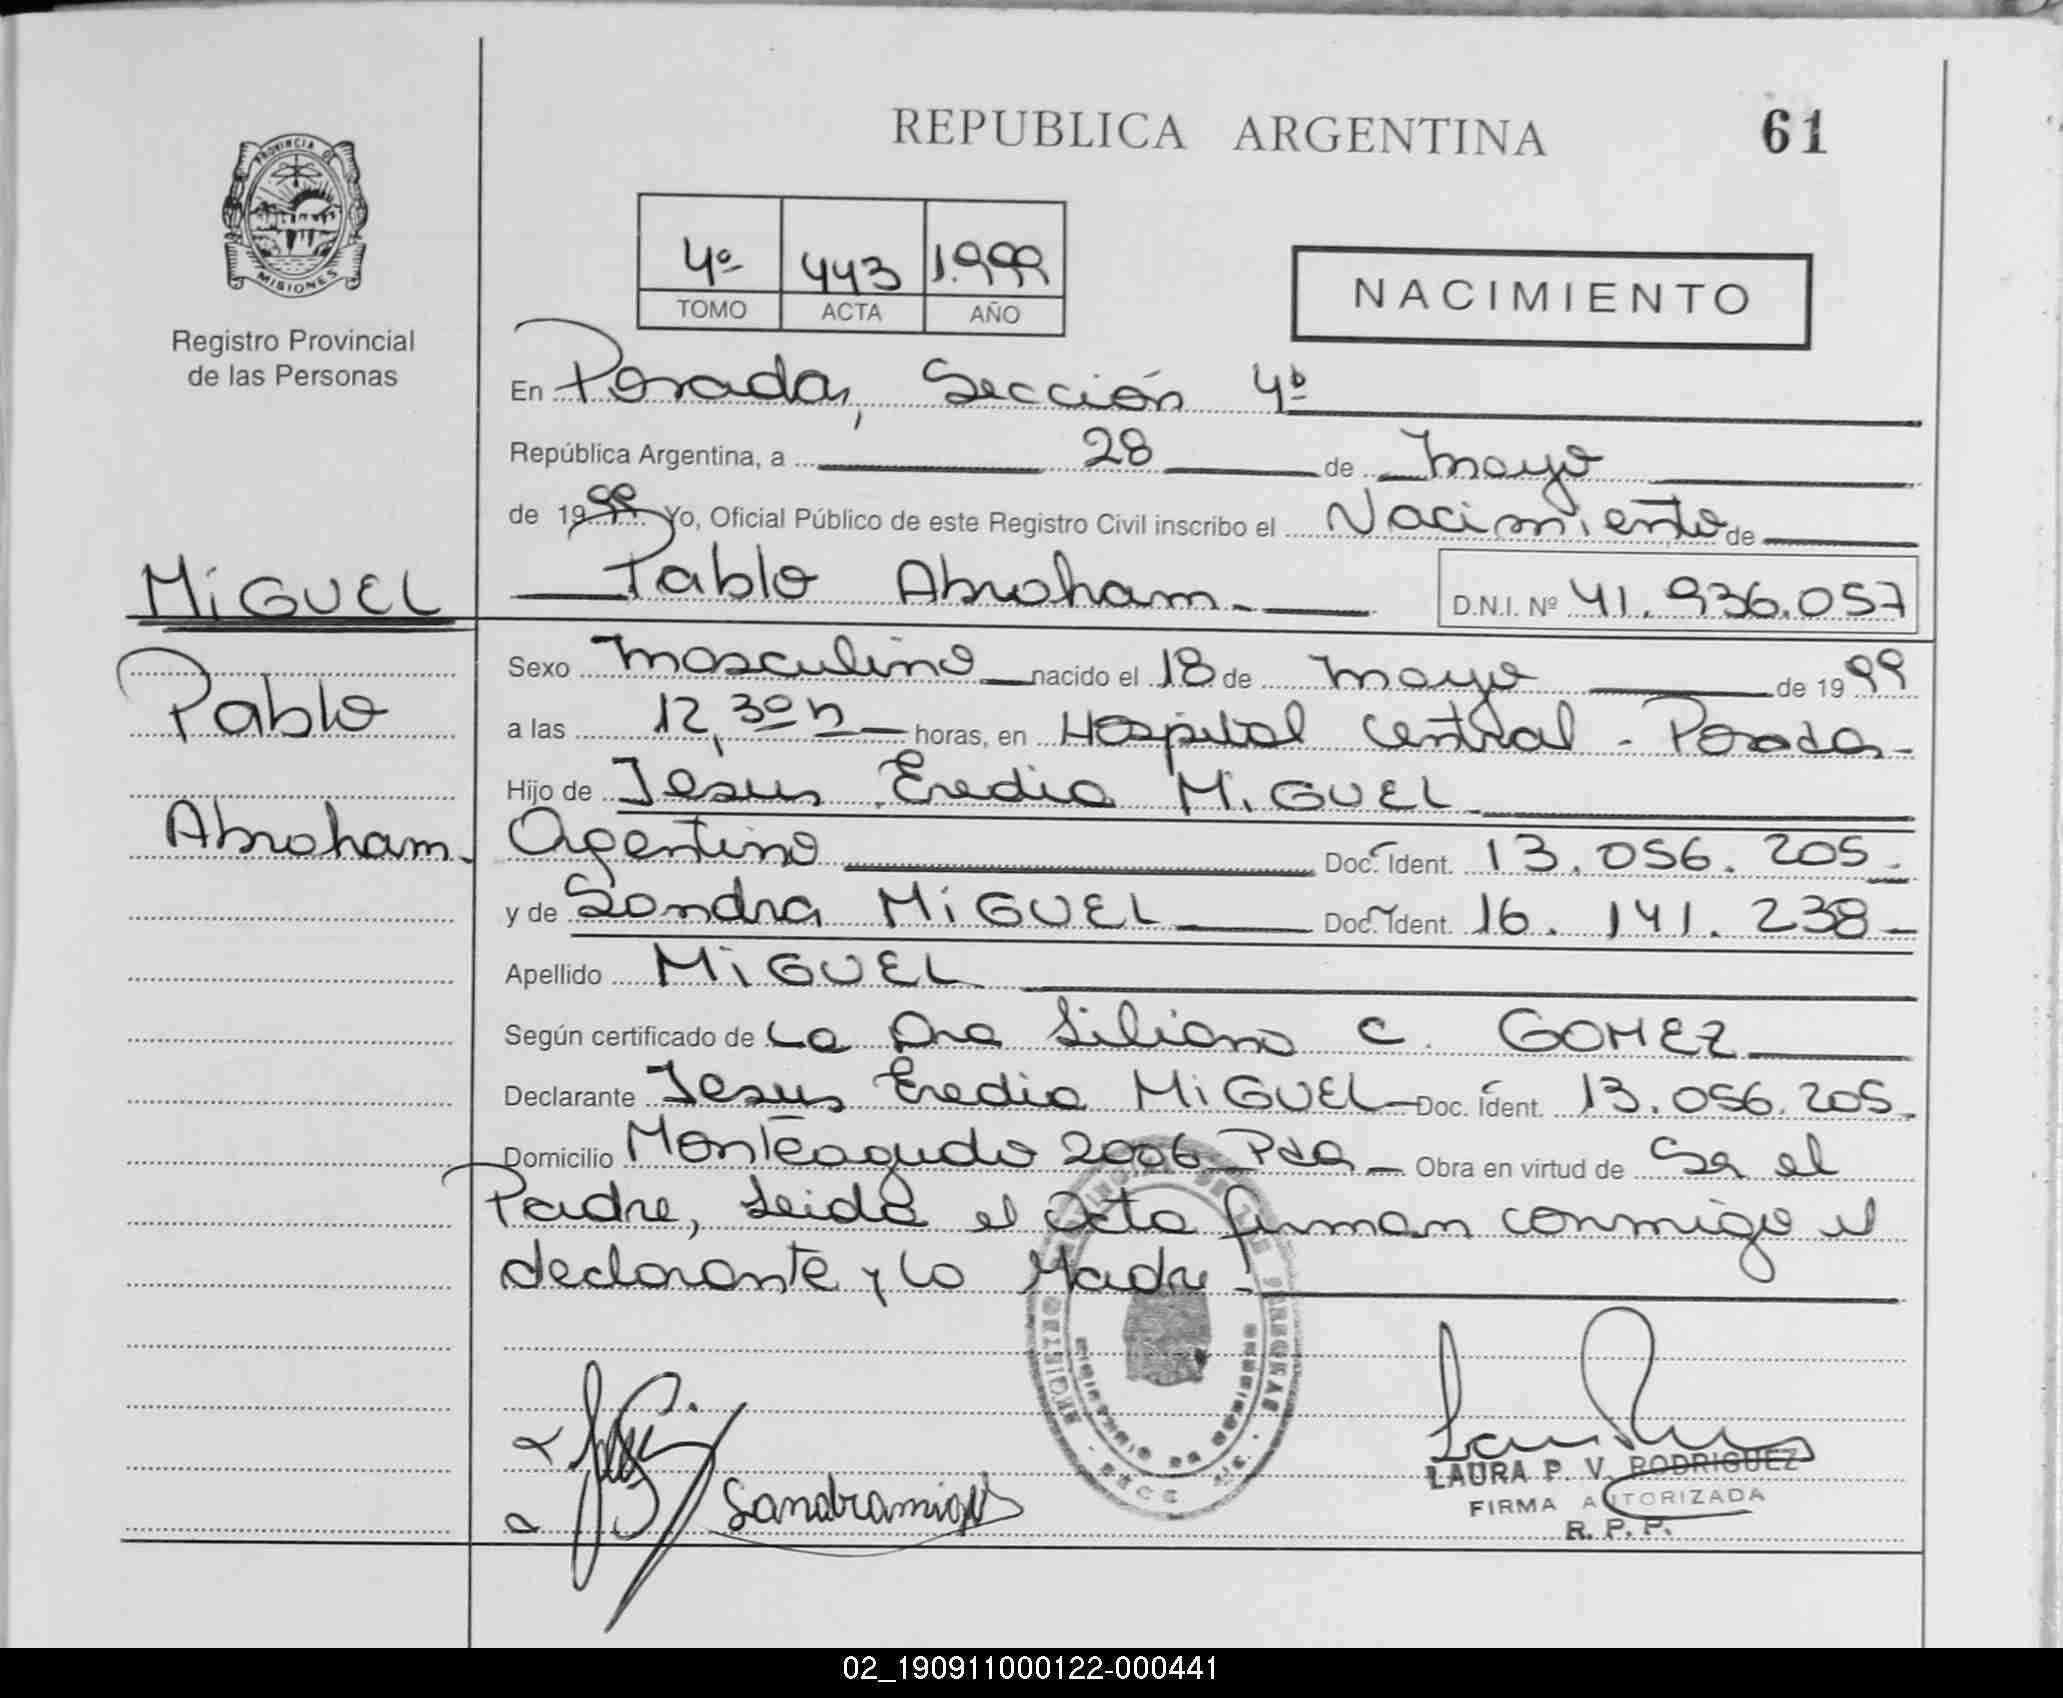 REPUBLICA ARGENTINA
61
PROVINCIA DE
MISIONES
Registro Provincial
de las Personas
4º 443 1.999
TOMO ACTA AÑO
NACIMIENTO
En Posadas, Sección 4ª
República Argentina, a 28 de mayo
de 1999 Yo, Oficial Público de este Registro Civil inscribo el Nacimiento de
Pablo Abraham D.N.I. Nº 41.936.057
MiGUEL
Pablo
Abraham.
Sexo masculino nacido el 18 de mayo de 1999
a las 12,30 h horas, en Hospital Central - Posadas
Hijo de Jesus Eredia MiGUEL
Agentino Doc. Ident. 13.056.205
y de Sandra MiGUEL Doc. Ident. 16.141.238
Apellido MiGUEL
Según certificado de La Dra Liliana C. GOMEZ
Declarante Jesus Eredia MiGUEL Doc. Ident. 13.056.205
Domicilio Monteagudo 2006 Pdas Obra en virtud de Ser el
Padre, Leida el Acta firman conmigo el
declarante y la Madre.
Sandramiguel
LAURA P. V. RODRIGUEZ
FIRMA AUTORIZADA
R. P. P.
02_190911000122-000441